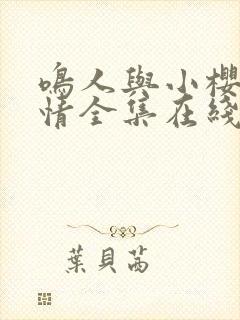 鳴人與小櫻
情全集在綫
葉貝茜